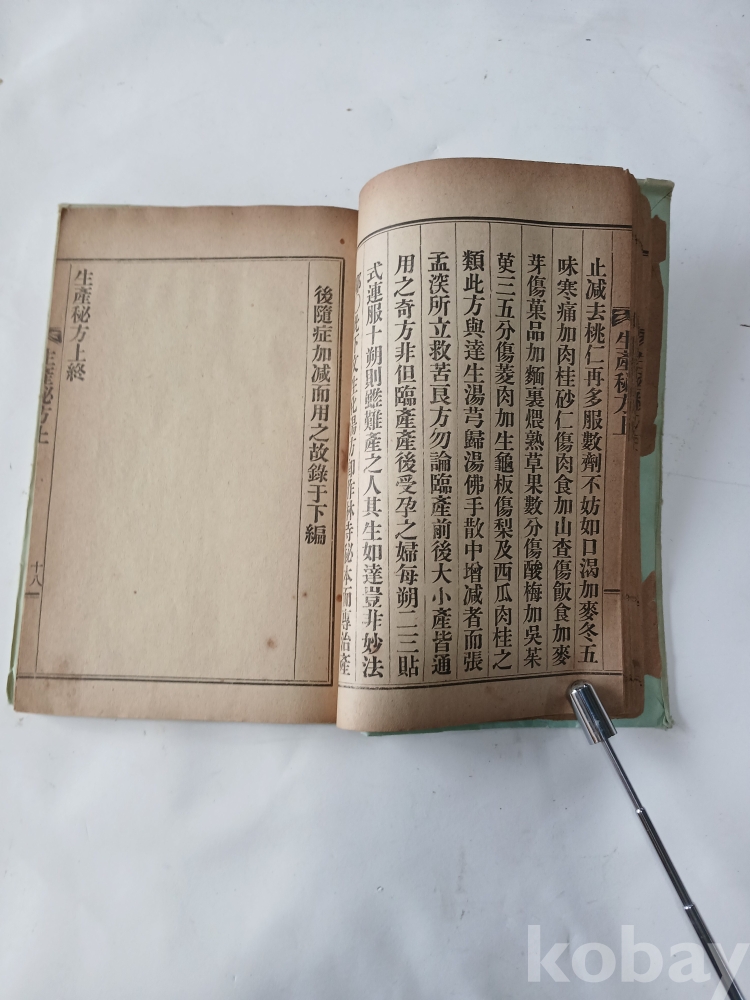 生產秘方上
止减去桃仁再多服數劑不妨如口渴加麥冬五
味寒痛加肉桂砂仁傷肉食加山查傷飯食加麥
芽傷菓品加麵裏煨熟草果數分傷酸梅加吳茱
萸三五分傷菱肉加生龜板傷梨及西瓜肉桂之
類此方與達生湯芎歸湯佛手散中增减者而張
孟深所立救苦良方勿論臨產前後大小產皆通
用之奇方非但臨產產後受孕之婦每朔二三貼
式連服十朔則雖難產之人其生如達豈非妙法
秘本而專治產
後隨症加减而用之故錄于下編
生產秘方上終
生產秘方上
十八
kobay